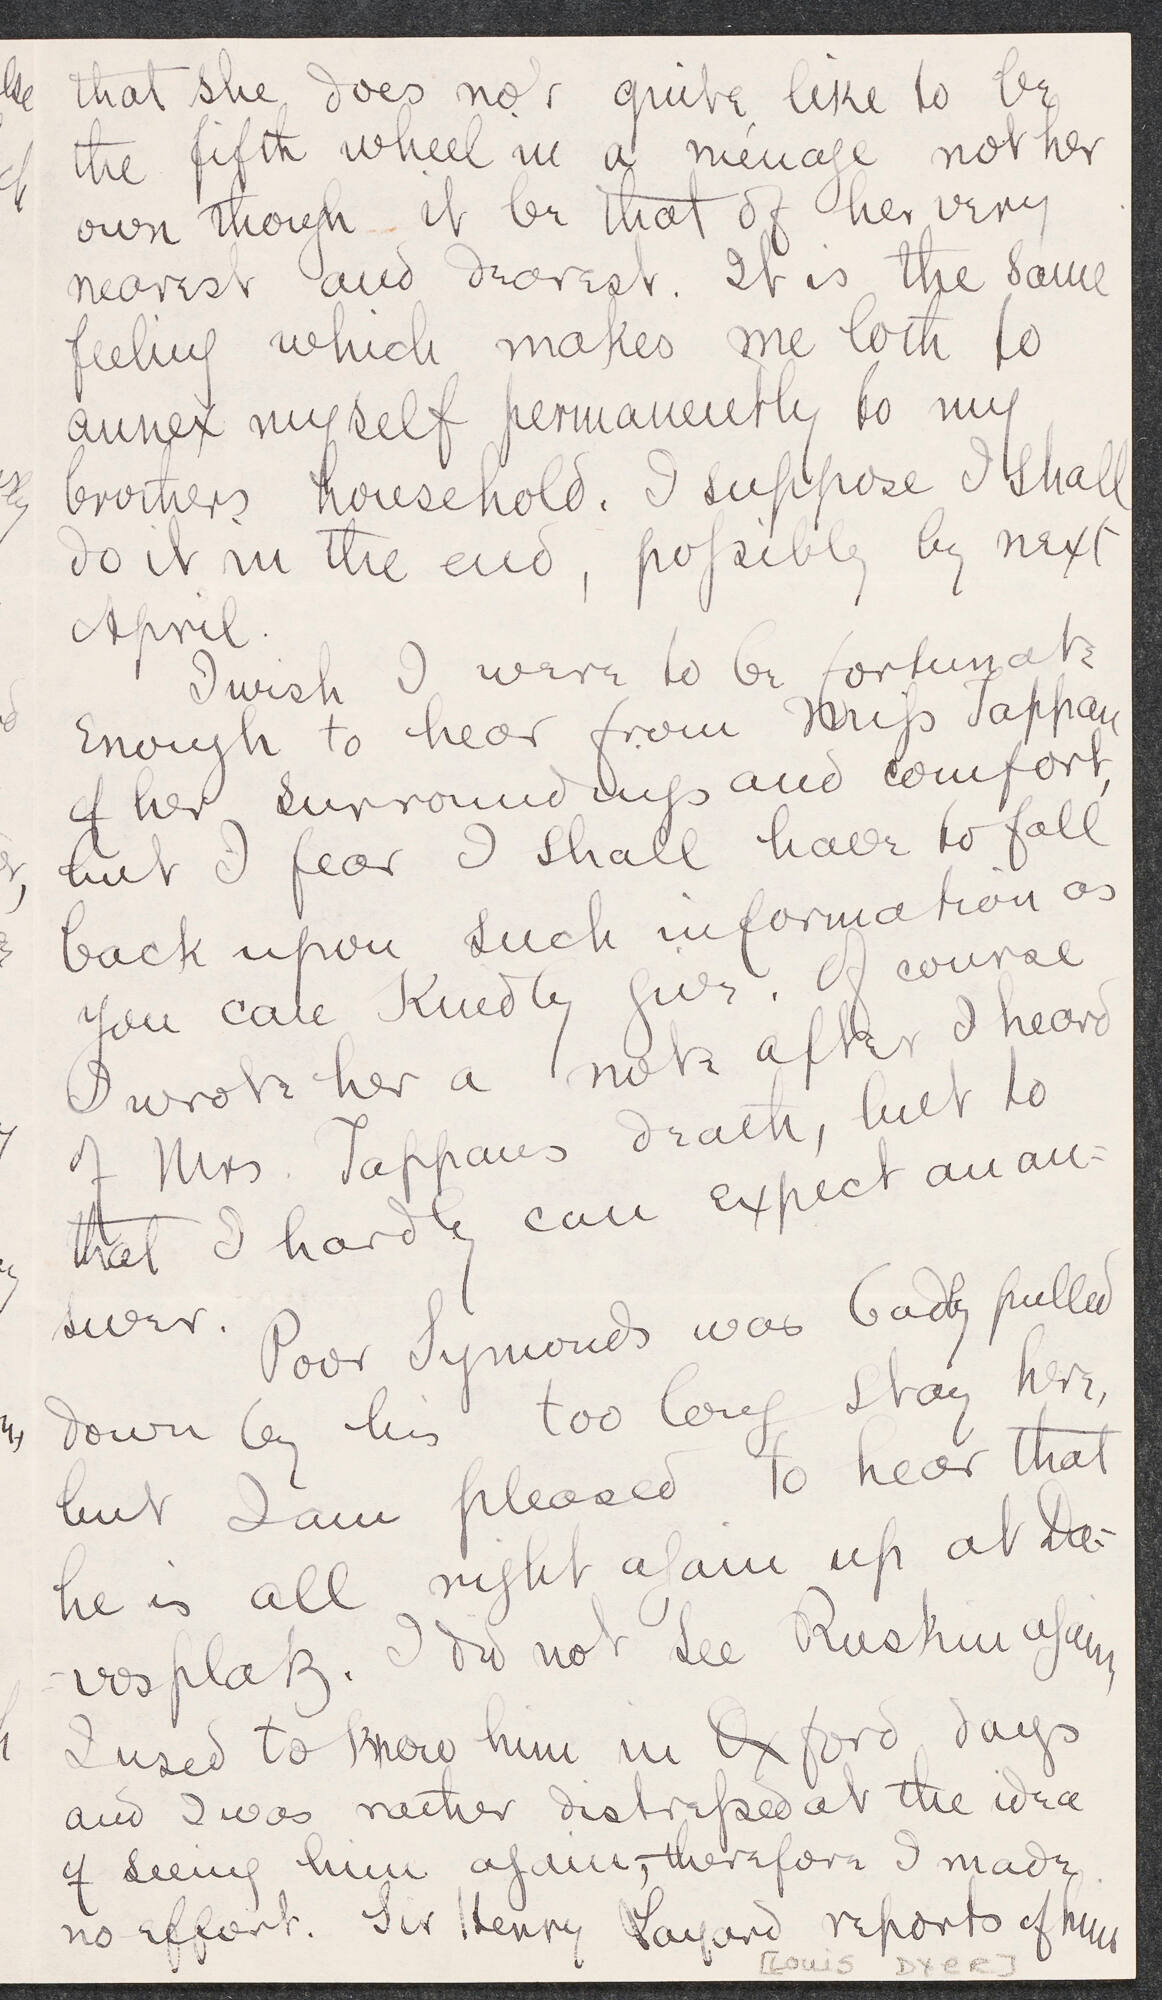 that she does not quite like to be
the fifth wheel in a ménage not her
own though it be that of her very
nearest and dearest. It is the same
feeling which makes me loth to
annex myself permanently to my
brothers household. I suppose I shall
do it in the end, possibly by next
April.
I wish I were to be fortunate
enough to hear from Miss Tappan
of her surroundings and comfort,
but I fear I shall have to fall
back upon such information as
you can kindly give. Of course
I wrote her a note after I heard
of Mrs. Tappans death, but to
that I hardly can expect an an-
swer.
Poor Symonds was badly pulled
down by his too long stay here,
but I am pleased to hear that
he is all right again up at Da-
-vosplatz. I did not see Ruskin again,
I used to know him in Oxford days
and I was rather distressed at the idea
of seeing him again, therefore I made
no effort. Sir Henry Layard reports of him
[Louis Dyer]